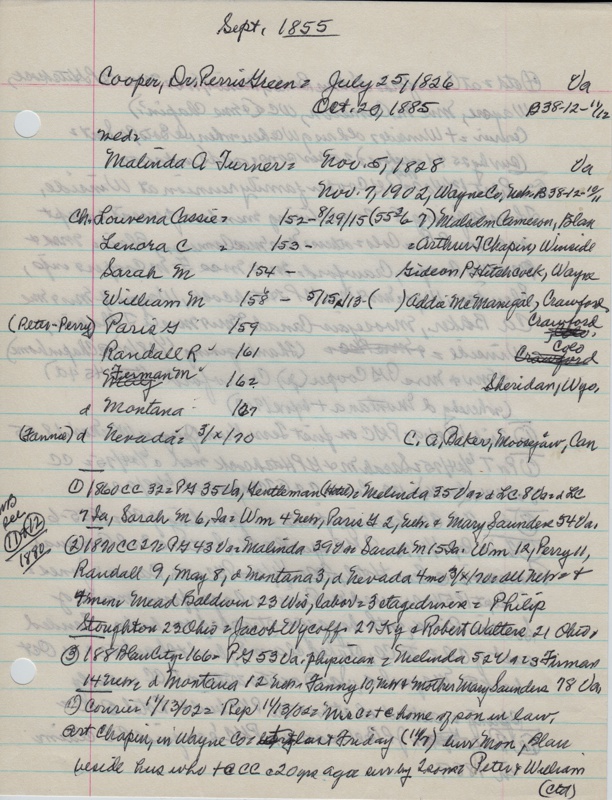 Sept, 1855
Cooper, Dr. Perris Green = July 25, 1826 Va
Oct. 20, 1885 B38-12-11/12
wed =
Malinda A Turner = Nov. 5, 1828 Va
Nov. 7, 1902, Wayne Co, Nebr. B38-12-10/11
Ch. Louvena Cassie = 152 - 8/29/15 Malcolm Cameron, Blair
Lenora C = 153 - = Arthur T Chapin, Winside
Sarah M 154 - Gideon P Hitchcock, Wayne
William M 158 - 5/15, 1113 - ( ) Addie McManigal, Crawford
(Peter-Perry) Paris G 159 Crawford
Randall R 161 Colo
Ferman M 162 Sheridan, Wyo.
d Montana 167
(Fannie) d Nevada = 3/x/70 C. A. Baker, Moosejaw, Can
① 1860 CC 32 = PG 35 Va, Gentleman (Hotel) = Melinda 35 Va = d LC 8 Va = d LC
7 Ia, Sarah M 6, Ia = Wm 4 Nebr, Paris G 2, Nebr. = Mary Saunders 54 Va.
NB see ⑪ & ⑫ 1880
② 1870 CC 27 = PG 43 Va = Malinda 39 Va = Sarah M 15 Ia = Wm 12, Perry 11,
Randall 9, May 8, d Montana 3, d Nevada 4 mo 3/x/70 = all Nebr = &
4 men: Mead Baldwin 23 Wis, labor = 3 stage drivers = Philip
Stoughton 23 Ohio = Jacob Wycoff 27 Ky & Robert Watters 21 Ohio
③ 188 Blair City = 166 - PG 53 Va, physician = Melinda 52 Va = s Furman
14 Nebr = d Montana 12 Nebr = Fanny 10, Nebr & Mother Mary Saunders 78 Va
① Courier 11/13/02 = Rep 11/13/02 = Mrs C at home of son in law,
Art Chapin, in Wayne Co = last Friday (11/7) bur Mon, Blair
beside hus who + CC c 20 yrs ago = surv by 2 sons = Peter & William
(ctd)